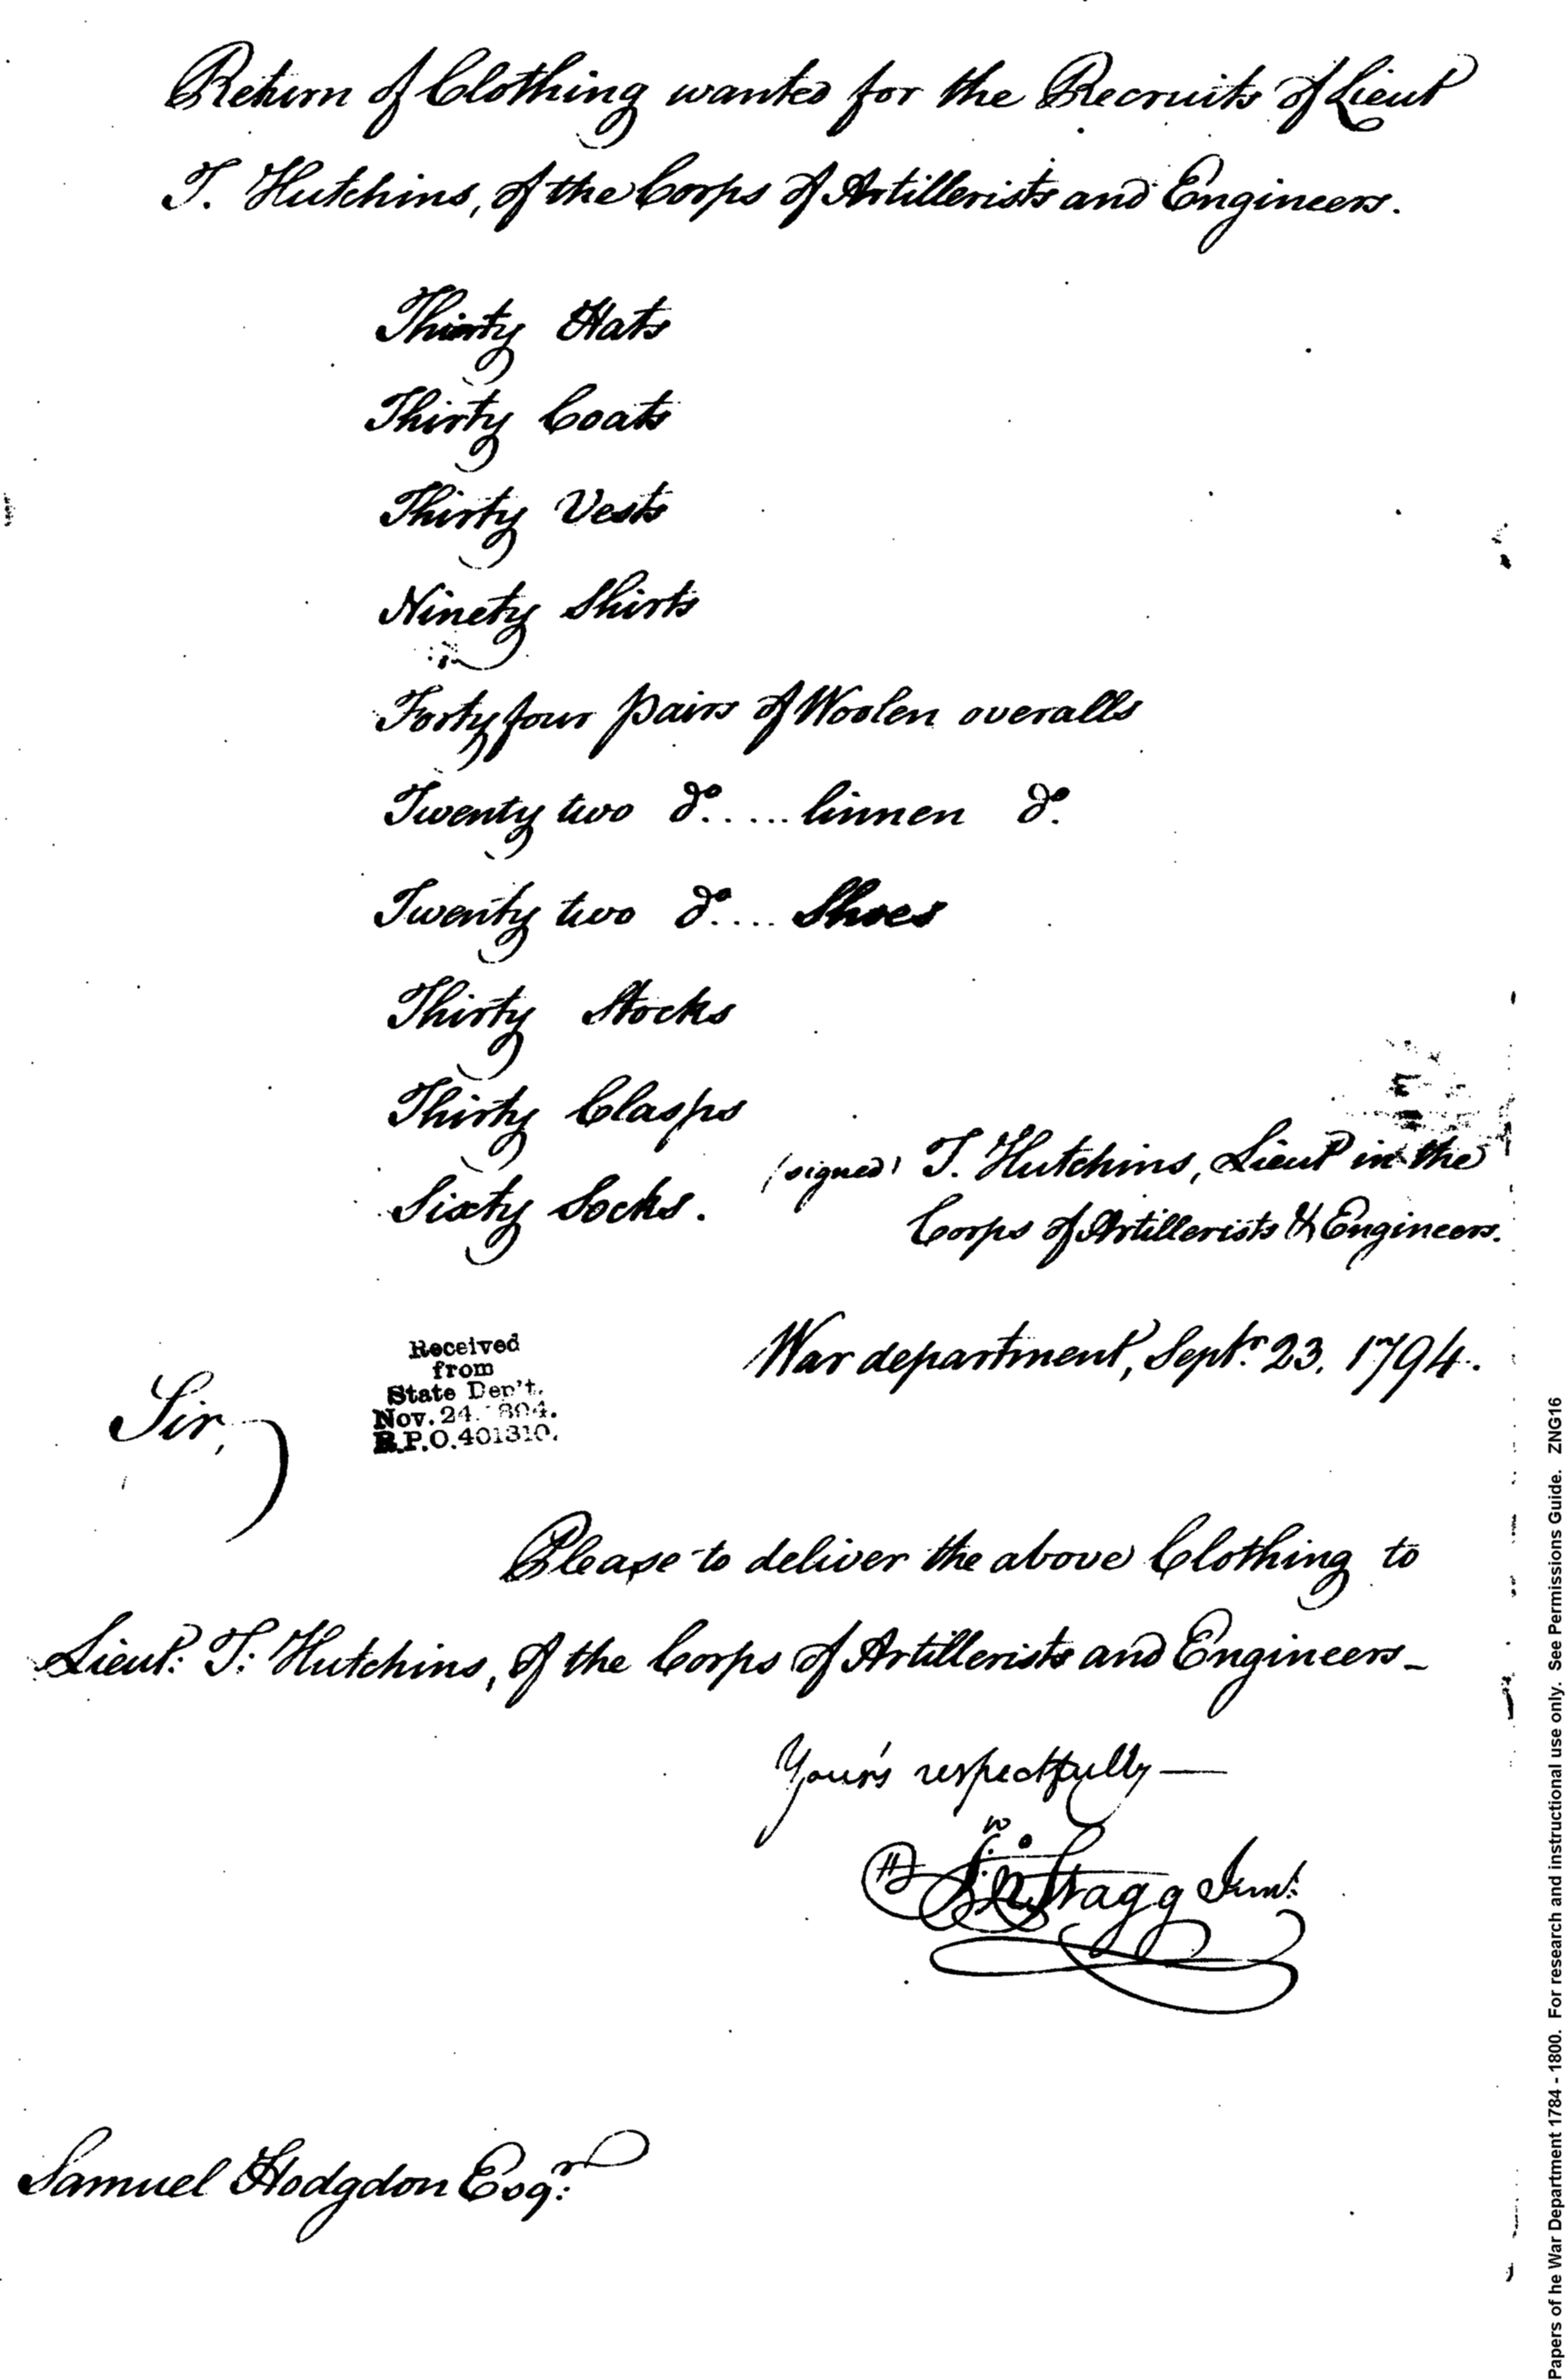 Return of Clothing wanted for the Recruits of Lieut
T. Hutchins, of the Corps of Artillerists and Engineers.
Thirty Hats
Thirty Coats
Thirty Vests
Ninety Shirts
Forty four pairs of Woolen overalls
Twenty two do..... linnen do.
Twenty two do.... Shoes
Thirty Stocks
Thirty Clasps
Sixty Socks.
(signed) T. Hutchins, Lieut in the
Corps of Artillerists & Engineers.
War department, Septr. 23. 1794.
Received
from
State Dep't.
Nov. 24. 1894.
R.P.O. 401310.
Sir,
Please to deliver the above Clothing to
Lieut: T: Hutchins, of the Corps of Artillerists and Engineers_
Your's respectfully—
Jno Stagg Junr:
Samuel Hodgdon Esqr:
Papers of he War Department 1784 - 1800. For research and instructional use only. See Permissions Guide. ZNG16